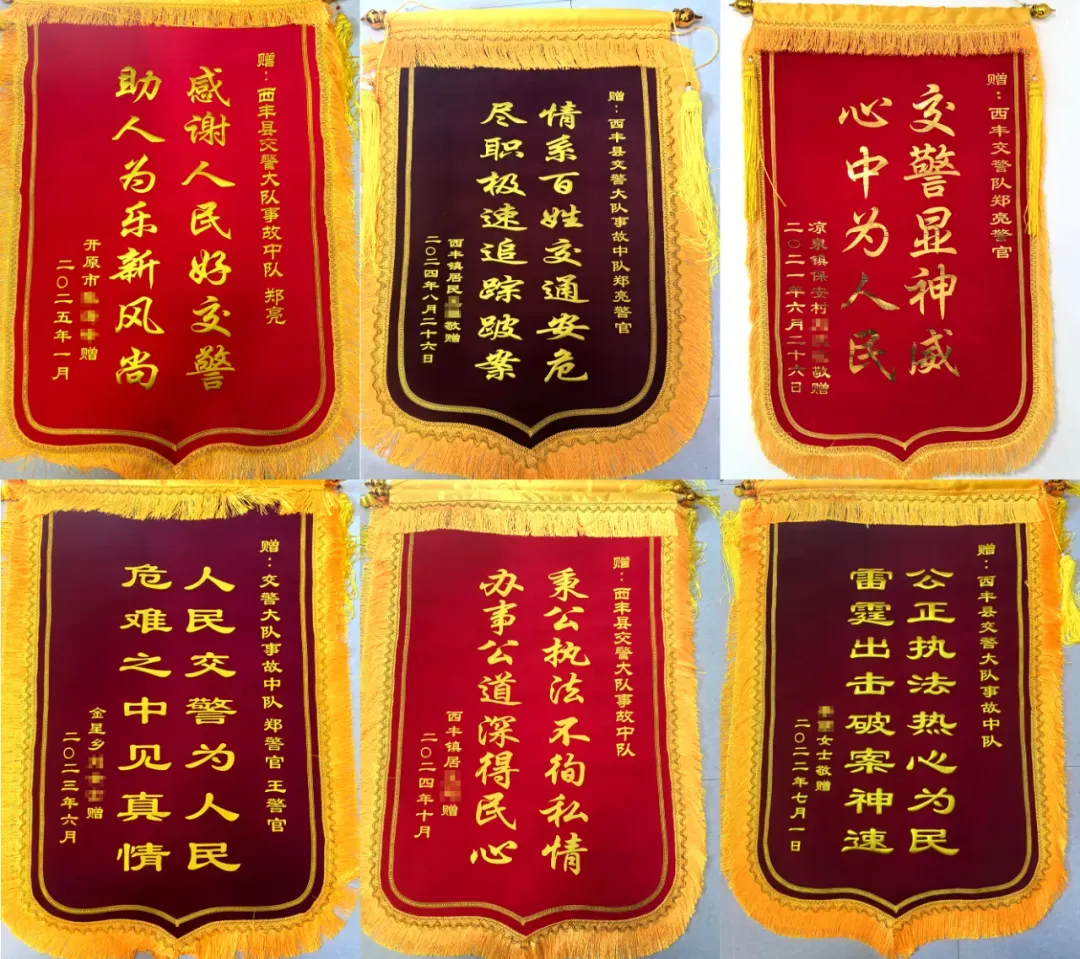 赠：西丰县交警大队事故中队 郑亮
感谢人民好交警
助人为乐新风尚
开原市 赠
二〇二五年一月
赠：西丰县交警大队事故中队郑亮警官
情系百姓交通安危
尽职极速追踪破案
西丰镇居民 敬赠
二〇二四年八月二十六日
赠：西丰交警队郑亮警官
交警显神威
心中为人民
凉泉镇保安村 敬赠
二〇二一年六月二十六日
赠：交警大队事故中队 郑警官 王警官
人民交警为人民
危难之中见真情
金星乡 赠
二〇二三年六月
赠：西丰县交警大队事故中队
秉公执法不徇私情
办事公道深得民心
西丰镇居 赠
二〇二四年十月
赠：西丰县交警大队事故中队
公正执法热心为民
雷霆出击破案神速
女士敬赠
二〇二二年七月一日